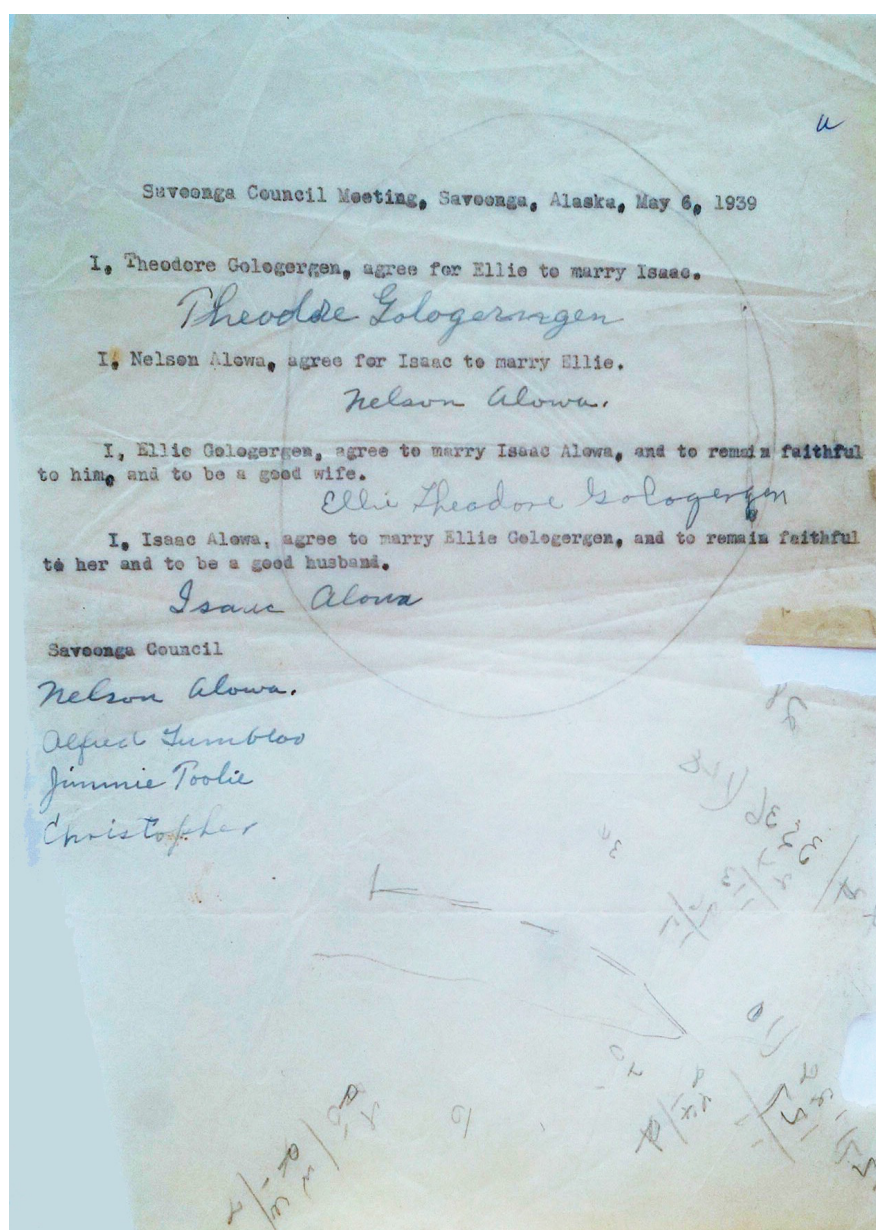 Savoonga Council Meeting, Savoonga, Alaska, May 6, 1939
I, Theodore Gologergen, agree for Ellie to marry Isaac.
Theodore Gologergen
I, Nelson Alowa, agree for Isaac to marry Ellie.
Nelson Alowa.
I, Ellie Gologergen, agree to marry Isaac Alowa, and to remain faithful
to him, and to be a good wife.
Ellie Theodore Gologergen
I, Isaac Alowa, agree to marry Ellie Gologergen, and to remain faithful
to her and to be a good husband.
Isaac Alowa
Savoonga Council
Nelson Alowa.
Alfred
Jimmie Toolie
Christopher